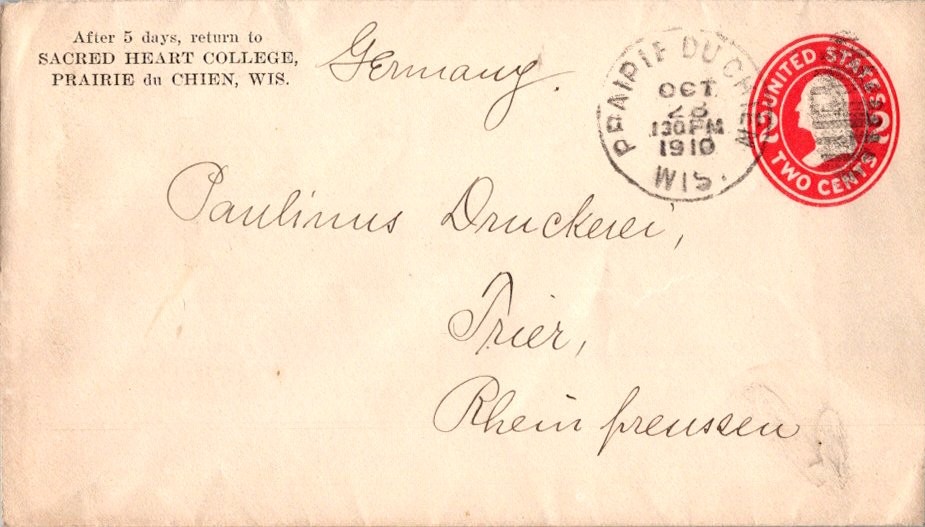 After 5 days, return to
SACRED HEART COLLEGE,
PRAIRIE du CHIEN, WIS.
Germany.
PRAIRIE DU CHIEN
OCT
28
130 PM
1910
WIS.
UNITED STATES
2 2
TWO CENTS
Paulinus Druckerei,
Trier,
Rheinpreussen.